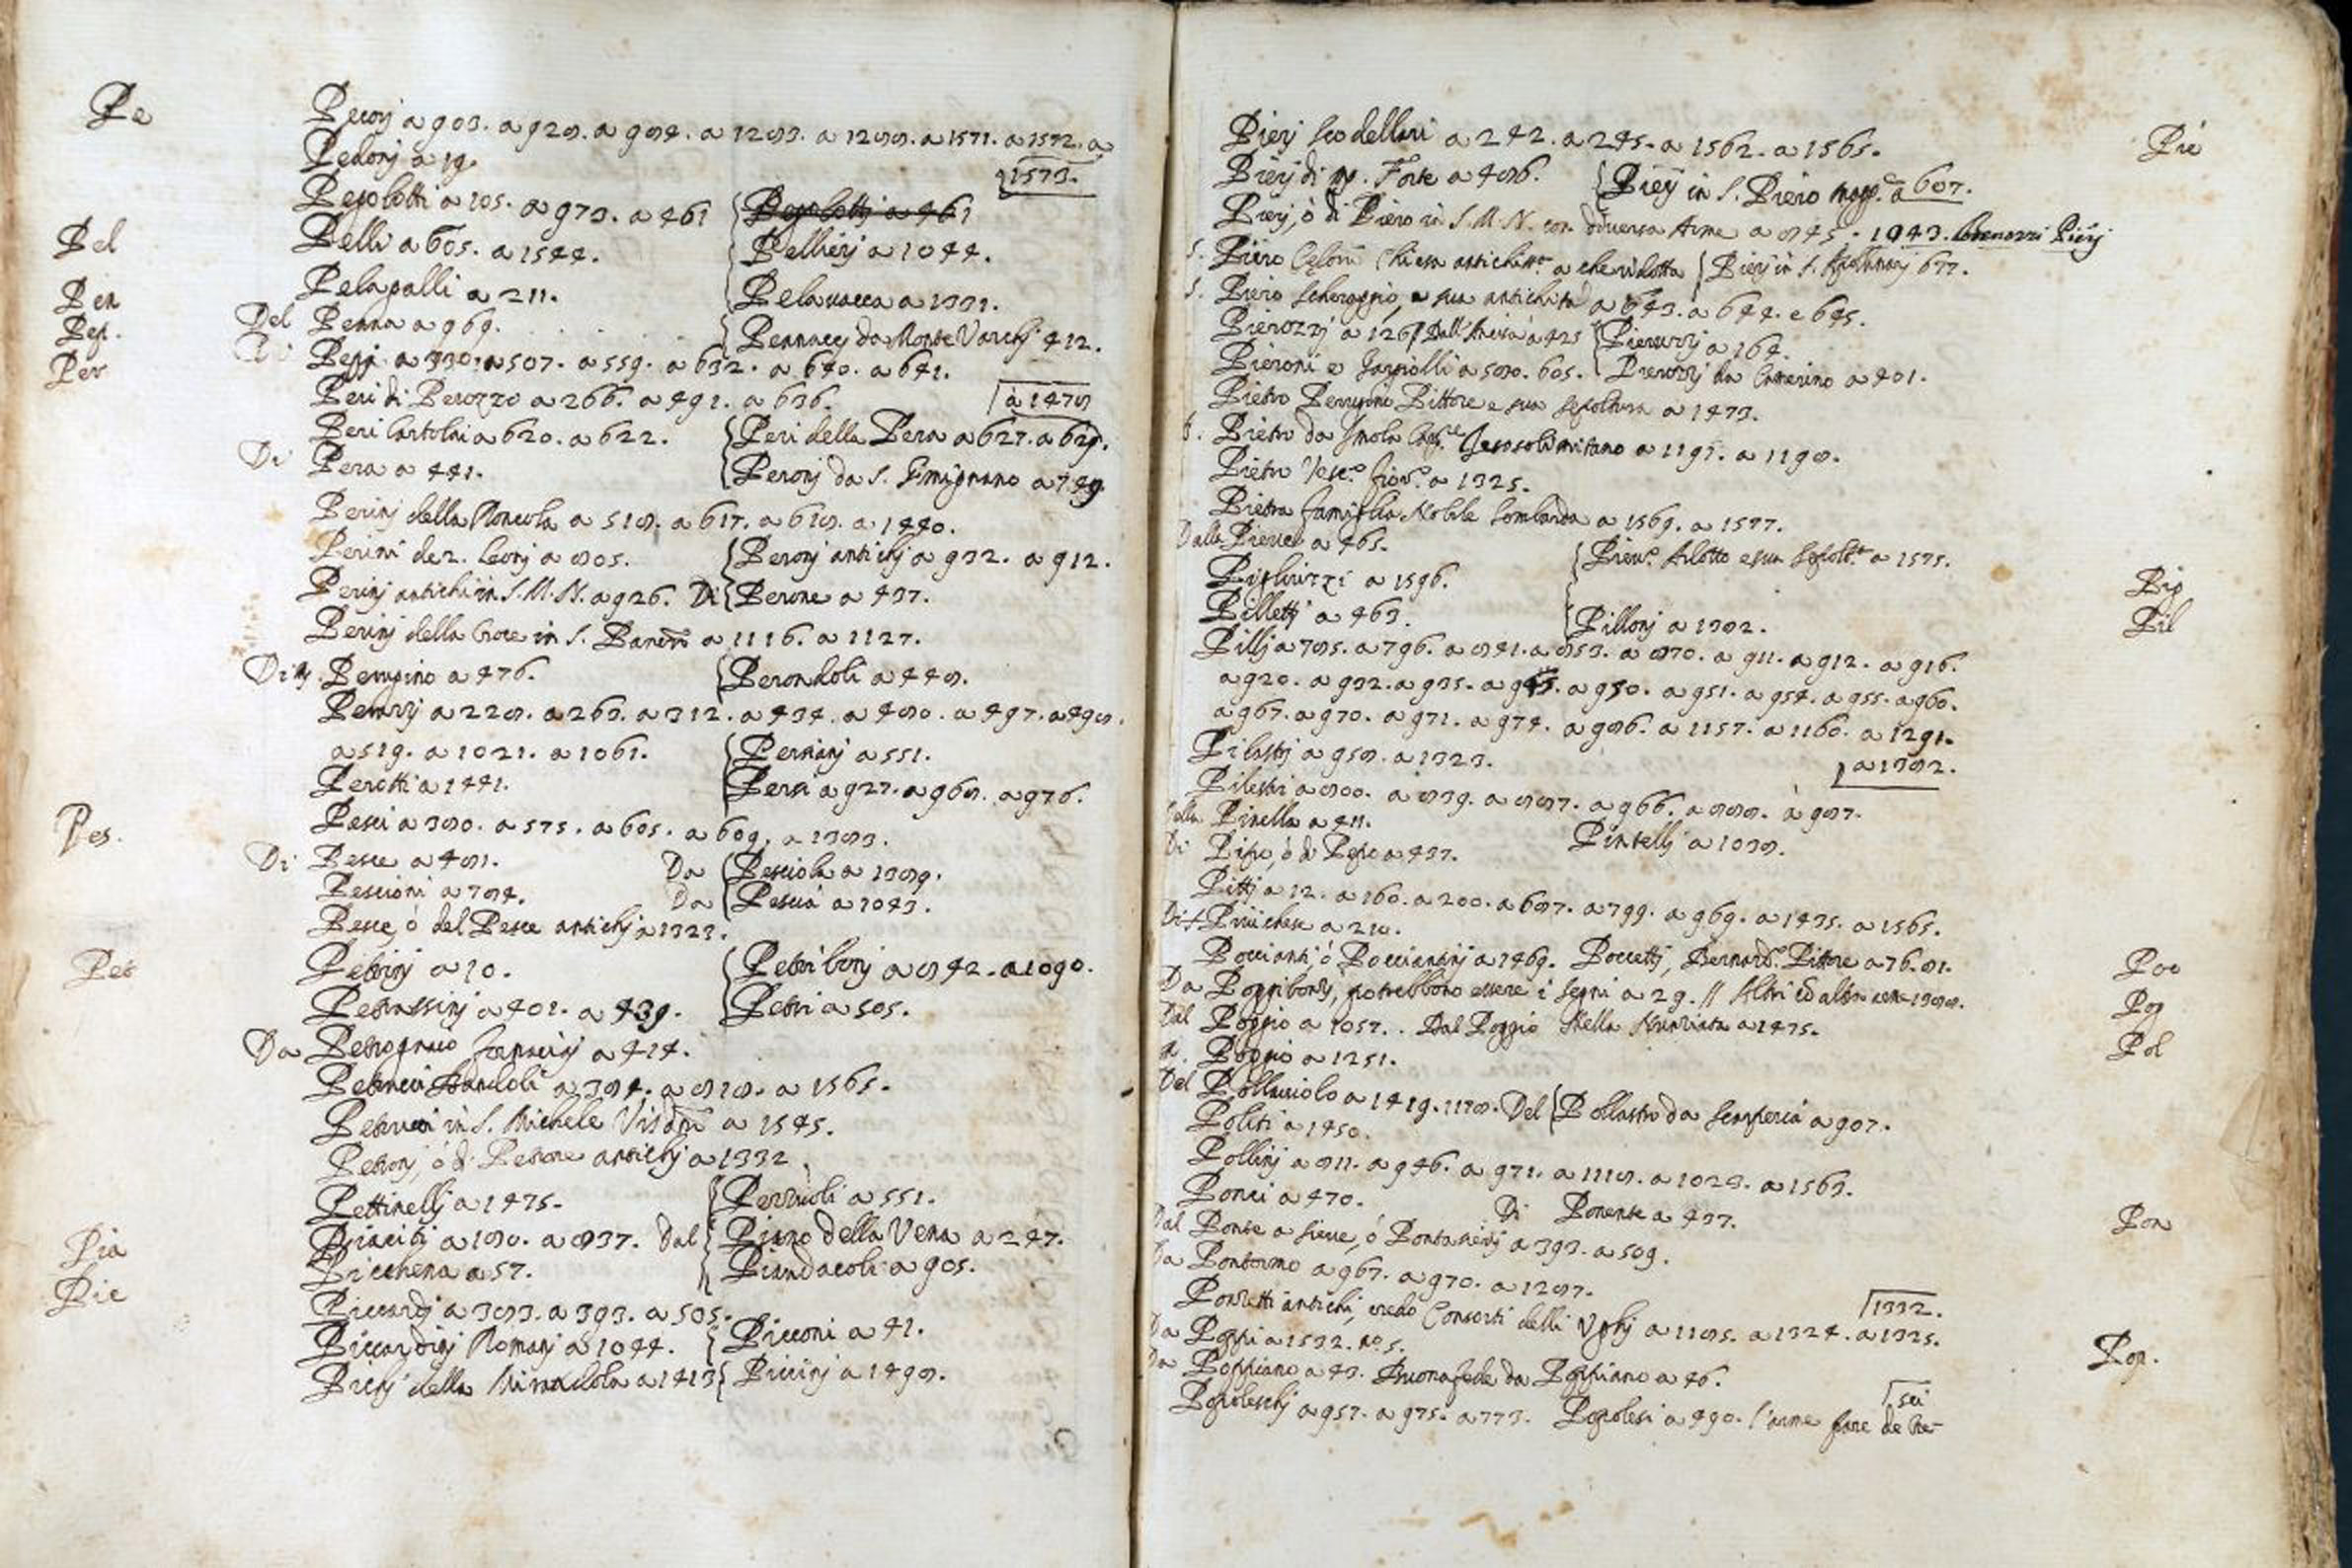 Pe
Pecorj a 903. a 928. a 984. a 1283. a 1288. a 1571. a 1572. a
1573.
Pedonj a 19.
Pegolotti a 105. a 973. a 461 { Pegolottj a 461
Pel
Pelli a 605. a 1544. { Pellierj a 1044.
Pelapalli a 211. { Pelavacca a 1331.
Pen
Del Penna a 969. { Pennaccj da Monte Varchj 412.
Pep.
Di Peppi a 330. a 507. a 559. a 632. a 640. a 641.
Per
Peri di Perozzo a 266. a 491. a 636. à 1478
Peri Cartolai a 620. a 622. { Peri della Pera a 627. a 629.
Di Pera a 441. { Peronj da S. Gimignano a 749
Perinj della Roncola a 518. a 617. a 618. a 1440.
Perini de 2. Leonj a 805. { Peronj antichj a 932. a 912.
Perinj antichi in S. M. N. a 926. Di { Perone a 437.
Perinj della Croce in S. a 1116. a 1127.
Di Perugino a 476. { Perondoli a 448.
Peruzzj a 228. a 263. a 312. a 434. a 480. a 497. a 498.
a 519. a 1021. a 1061. { Persianj a 551.
Perotti a 1441. { Persa a 927. a 968. a 976.
Pes.
Pesci a 380. a 575. a 605. a 609. a 1383.
Di Pesce a 481. Da { Pesciola a 1389.
Pescioni a 784. Da { Pescia a 1043.
Pesce, ò del Pesce antichj a 1323.
Pet
Petrinj a 10. { Petribonj a 842. a 1090.
Petrassinj a 401. a 439. { Petri a 505.
Da Petrognano a 414.
Petrucci Bandoli a 384. a 818. a 1565.
Petrucci in S. Michele Visdni a 1545.
Petronj, ò di Petrone antichj a 1332
Pettinellj a 1475. { a 551.
Pia
a 180. a 837. Dal { Piano della Vena a 247.
Picchena a 57. { Piandacoli a 905.
Pic
Piccardj a 383. a 393. a 505.
Piccardinj Romanj a 1044. { Picconi a 41.
Pichj della Mirandola a 1413 { Piccinj a 1498.
Pie
Pierj Scodellari a 242. a 245. a 1562. a 1565.
Pierj di m. Forte a 486. { Pierj in S. Piero magg.e a 607.
Pierj, ò di Piero in S. M. N. con diversa Arme a 845. 1043. Pierj
S. Piero Celoru Chiesa antichiss.a a che ridotta { Pierj in S. Apollinarj 677.
S. Piero Scheraggio, e sua antichità a 643. a 644. e 645.
Pierozzj a 126 Dall'Ancisa a 425 { Pierozzj a 164.
Pieroni e a 580. 605. { Pierozzj da Catterino a 401.
Pietro Perugino Pittore e sua sepoltura a 1473.
Pietro da Imola Cav.re Jerosolimitano a 1191. a 1198.
Pietro Vesc.o Fior.o a 1325.
Pietra famiglia Nobile Lombarda a 1569. a 1577.
Dalla Pieve a 465. { Piev.o Arlotto e sua sepolt.a a 1575.
Pig
Pigliuzzi a 1596.
Pil
Pillettj a 463. { Pillonj a 1302.
Pillj a 785. a 796. a 841. a 853. a 870. a 911. a 912. a 916.
a 920. a 932. a 935. a 945. a 950. a 951. a 954. a 955. a 960.
a 967. a 970. a 971. a 974. a 986. a 1157. a 1160. a 1291.
a 1382.
Pilastrj a 958. a 1323.
Pilestri a 800. a 839. a 887. a 966. a 888. à 987.
Della Pinella a 411. Pintellj a 1038.
Di Pipo, ò di Pepo a 437.
Pittj a 12. a 160. a 200. a 687. a 799. a 969. a 1435. a 1565.
a 210.
Poc
Poccianti, ò Pocciantinj a 1469. Poccettj, Bernard.o Pittore a 76. 81.
Da Poggibonsj, potrebbono essere i segni a 29. // Altri ed altro
Pog
Dal Poggio a 1057. Dal Poggio della Nunziata a 1475.
Poggio a 1251.
Pol
Del Pollaiuolo a 1419. 1178. Del { Pollastro da Semperia a 907.
Politi a 1450.
Pollinj a 811. a 946. a 971. a 1118. a 1023. a 1563.
Ponci a 470. Di Ponente a 437.
Pon
Dal Ponte a Sieve, ò Pontasievj a 393. a 509.
Da Pontormo a 967. a 970. a 1287.
1332.
Ponzetti antichi, credo Consorti delli Vghj a 1185. a 1324. a 1325.
Pop.
Da Poppi a 1532. no 5.
Da Poppiano a 43. Buonafede da Poppiano a 46.
Popoleschj a 957. a 975. a 773. Popolesi a 490. l'arme pare de Ne-
sci